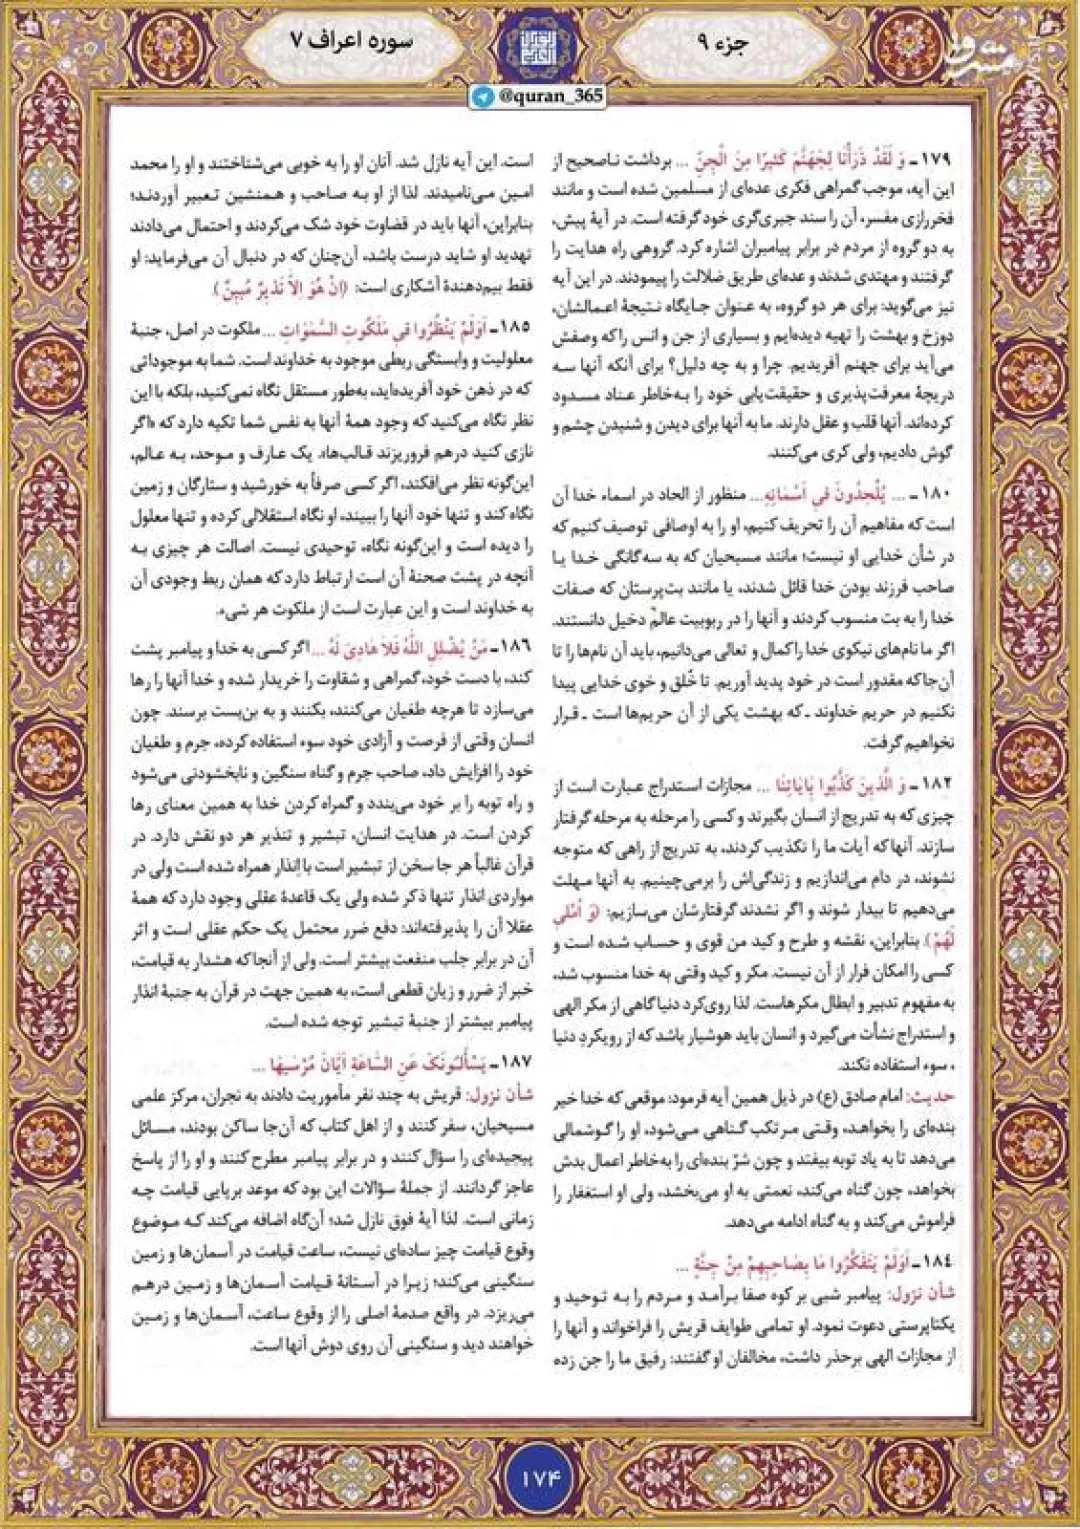 جزء ۹
سوره اعراف ۷
مشرق
@quran_365
۱۷۹ـ وَ لَقَدْ ذَرَأْنَا لِجَهَنَّمَ كَثِيرًا مِنَ الْجِنِّ ... برداشت ناصحیح از
این آیه، موجب گمراهی فکری عده‌ای از مسلمین شده است و مانند
فخررازی مفسر، آن را سند جبری‌گری خود گرفته است. در آیهٔ پیش،
به دو گروه از مردم در برابر پیامبران اشاره کرد. گروهی راه هدایت را
گرفتند و مهتدی شدند و عده‌ای طریق ضلالت را پیمودند. در این آیه
نیز می‌گوید: برای هر دو گروه، به عنوان جایگاه نتیجهٔ اعمالشان،
دوزخ و بهشت را تهیه دیده‌ایم و بسیاری از جن و انس را که وصفش
می‌آید برای جهنم آفریدیم. چرا و به چه دلیل؟ برای آنکه آنها سه
دریچهٔ معرفت‌پذیری و حقیقت‌یابی خود را به‌خاطر عناد مسدود
کرده‌اند. آنها قلب و عقل دارند. ما به آنها برای دیدن و شنیدن چشم و
گوش دادیم، ولی کری می‌کنند.
۱۸۰ـ ... يُلْحِدُونَ فِي أَسْمَائِهِ... منظور از الحاد در اسماء خدا آن
است که مفاهیم آن را تحریف کنیم، او را به اوصافی توصیف کنیم که
در شأن خدایی او نیست؛ مانند مسیحیان که به سه‌گانگی خدا یا
صاحب فرزند بودن خدا قائل شدند، یا مانند بت‌پرستان که صفات
خدا را به بت منسوب کردند و آنها را در ربوبیت عالم دخیل دانستند.
اگر ما نام‌های نیکوی خدا را کمال و تعالی می‌دانیم، باید آن نام‌ها را تا
آن‌جا که مقدور است در خود پدید آوریم. تا خُلق و خوی خدایی پیدا
نکنیم در حریم خداوند ـ که بهشت یکی از آن حریم‌ها است ـ قرار
نخواهیم گرفت.
۱۸۲ـ وَ الَّذِينَ كَذَّبُوا بِآيَاتِنَا ... مجازات استدراج عبارت است از
چیزی که به تدریج از انسان بگیرند و کسی را مرحله به مرحله گرفتار
سازند. آنها که آیات ما را تکذیب کردند، به تدریج از راهی که متوجه
نشوند، در دام می‌اندازیم و زندگی‌اش را برمی‌چینیم. به آنها مهلت
می‌دهیم تا بیدار شوند و اگر نشدند گرفتارشان می‌سازیم: (وَ أُمْلِي
لَهُمْ). بنابراین، نقشه و طرح و کید من قوی و حساب شده است و
کسی را امکان فرار از آن نیست. مکر و کید وقتی به خدا منسوب شد،
به مفهوم تدبیر و ابطال مکرهاست. لذا روی‌کرد دنیا گاهی از مکر الهی
و استدراج نشأت می‌گیرد و انسان باید هوشیار باشد که از رویکرد دنیا
، سوء استفاده نکند.
حدیث: امام صادق (ع) در ذیل همین آیه فرمود: موقعی که خدا خیر
بنده‌ای را بخواهد، وقتی مرتکب گناهی می‌شود، او را گوشمالی
می‌دهد تا به یاد توبه بیفتد و چون شرّ بنده‌ای را به‌خاطر اعمال بدش
بخواهد، چون گناه می‌کند، نعمتی به او می‌بخشد، ولی او استغفار را
فراموش می‌کند و به گناه ادامه می‌دهد.
۱۸۴ـ أَوَلَمْ يَتَفَكَّرُوا مَا بِصَاحِبِهِمْ مِنْ جِنَّةٍ ...
شأن نزول: پیامبر شبی بر کوه صفا برآمد و مردم را به توحید و
یکتاپرستی دعوت نمود. او تمامی طوایف قریش را فراخواند و آنها را
از مجازات الهی برحذر داشت، مخالفان او گفتند: رفیق ما را جن زده
است. این آیه نازل شد. آنان او را به خوبی می‌شناختند و او را محمد
امین می‌نامیدند. لذا از او به صاحب و همنشین تعبیر آوردند؛
بنابراین، آنها باید در قضاوت خود شک می‌کردند و احتمال می‌دادند
تهدید او شاید درست باشد، آن‌چنان که در دنبال آن می‌فرماید: او
فقط بیم‌دهندهٔ آشکاری است: (إِنْ هُوَ إِلاَّ نَذِيرٌ مُبِينٌ).
۱۸۵ـ أَوَلَمْ يَنْظُرُوا فِي مَلَكُوتِ السَّمٰوَاتِ ... ملکوت در اصل، جنبهٔ
معلولیت و وابستگی ربطی موجود به خداوند است. شما به موجوداتی
که در ذهن خود آفریده‌اید، به‌طور مستقل نگاه نمی‌کنید، بلکه با این
نظر نگاه می‌کنید که وجود همهٔ آنها به نفس شما تکیه دارد که «اگر
نازی کنید درهم فروریزند قالب‌ها». یک عارف و موحد، به عالم،
این‌گونه نظر می‌افکند، اگر کسی صرفاً به خورشید و ستارگان و زمین
نگاه کند و تنها خود آنها را ببیند، او نگاه استقلالی کرده و تنها معلول
را دیده است و این‌گونه نگاه، توحیدی نیست. اصالت هر چیزی به
آنچه در پشت صحنهٔ آن است ارتباط دارد که همان ربط وجودی آن
به خداوند است و این عبارت است از ملکوت هر شیء.
۱۸۶ـ مَنْ يُضْلِلِ اللّٰهُ فَلاَ هَادِيَ لَهُ ... اگر کسی به خدا و پیامبر پشت
کند، با دست خود، گمراهی و شقاوت را خریدار شده و خدا آنها را رها
می‌سازد تا هرچه طغیان می‌کنند، بکنند و به بن‌بست برسند. چون
انسان وقتی از فرصت و آزادی خود سوء استفاده کرده، جرم و طغیان
خود را افزایش داد، صاحب جرم و گناه سنگین و نابخشودنی می‌شود
و راه توبه را بر خود می‌بندد و گمراه کردن خدا به همین معنای رها
کردن است. در هدایت انسان، تبشیر و تنذیر هر دو نقش دارد. در
قرآن غالباً هر جا سخن از تبشیر است با انذار همراه شده است ولی در
مواردی انذار تنها ذکر شده ولی یک قاعدهٔ عقلی وجود دارد که همهٔ
عقلا آن را پذیرفته‌اند: دفع ضرر محتمل یک حکم عقلی است و اثر
آن در برابر جلب منفعت بیشتر است. ولی از آنجا که هشدار به قیامت،
خبر از ضرر و زیان قطعی است، به همین جهت در قرآن به جنبهٔ انذار
پیامبر بیشتر از جنبهٔ تبشیر توجه شده است.
۱۸۷ـ يَسْأَلُونَكَ عَنِ السَّاعَةِ أَيَّانَ مُرْسَيهَا ...
شأن نزول: قریش به چند نفر مأموریت دادند به نجران، مرکز علمی
مسیحیان، سفر کنند و از اهل کتاب که آن‌جا ساکن بودند، مسائل
پیچیده‌ای را سؤال کنند و در برابر پیامبر مطرح کنند و او را از پاسخ
عاجز گردانند. از جملهٔ سؤالات این بود که موعد برپایی قیامت چه
زمانی است. لذا آیهٔ فوق نازل شد؛ آن‌گاه اضافه می‌کند که موضوع
وقوع قیامت چیز ساده‌ای نیست، ساعت قیامت در آسمان‌ها و زمین
سنگینی می‌کند؛ زیرا در آستانهٔ قیامت آسمان‌ها و زمین درهم
می‌ریزد. در واقع صدمهٔ اصلی را از وقوع ساعت، آسمان‌ها و زمین
خواهند دید و سنگینی آن روی دوش آنها است.
۱۷۴